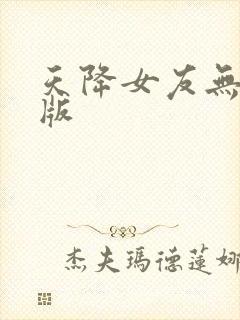 天降女友無
版
杰夫瑪德蓮娜